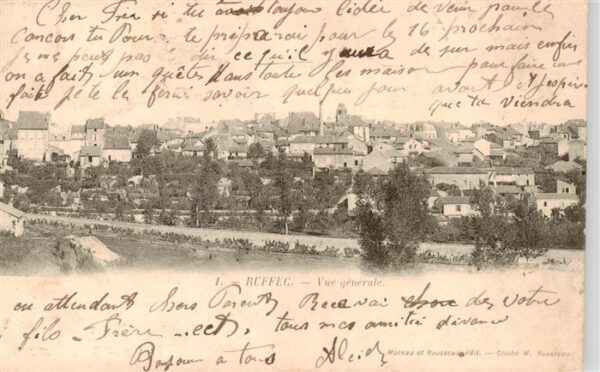 Cher Frère si tu as toujour lider de venir pour le
concours tu Pourra te préparai pour le 16 prochain
Je ne peut pas à dire ce qu'il y aura de sur mais enfin
on a fait un quête dans toute les maison pour faire un
fait je te le ferai savoir quelque jour avant J'espère
que tu viendra
1. RUFFEC. — Vue générale.
en attendant Chers Parents Recevai des votre
filo Frère ect, tous mes amitié
Bonjour a tous Alcid
Moreau et Rousseau, édit. — Cliché M. Rousseau